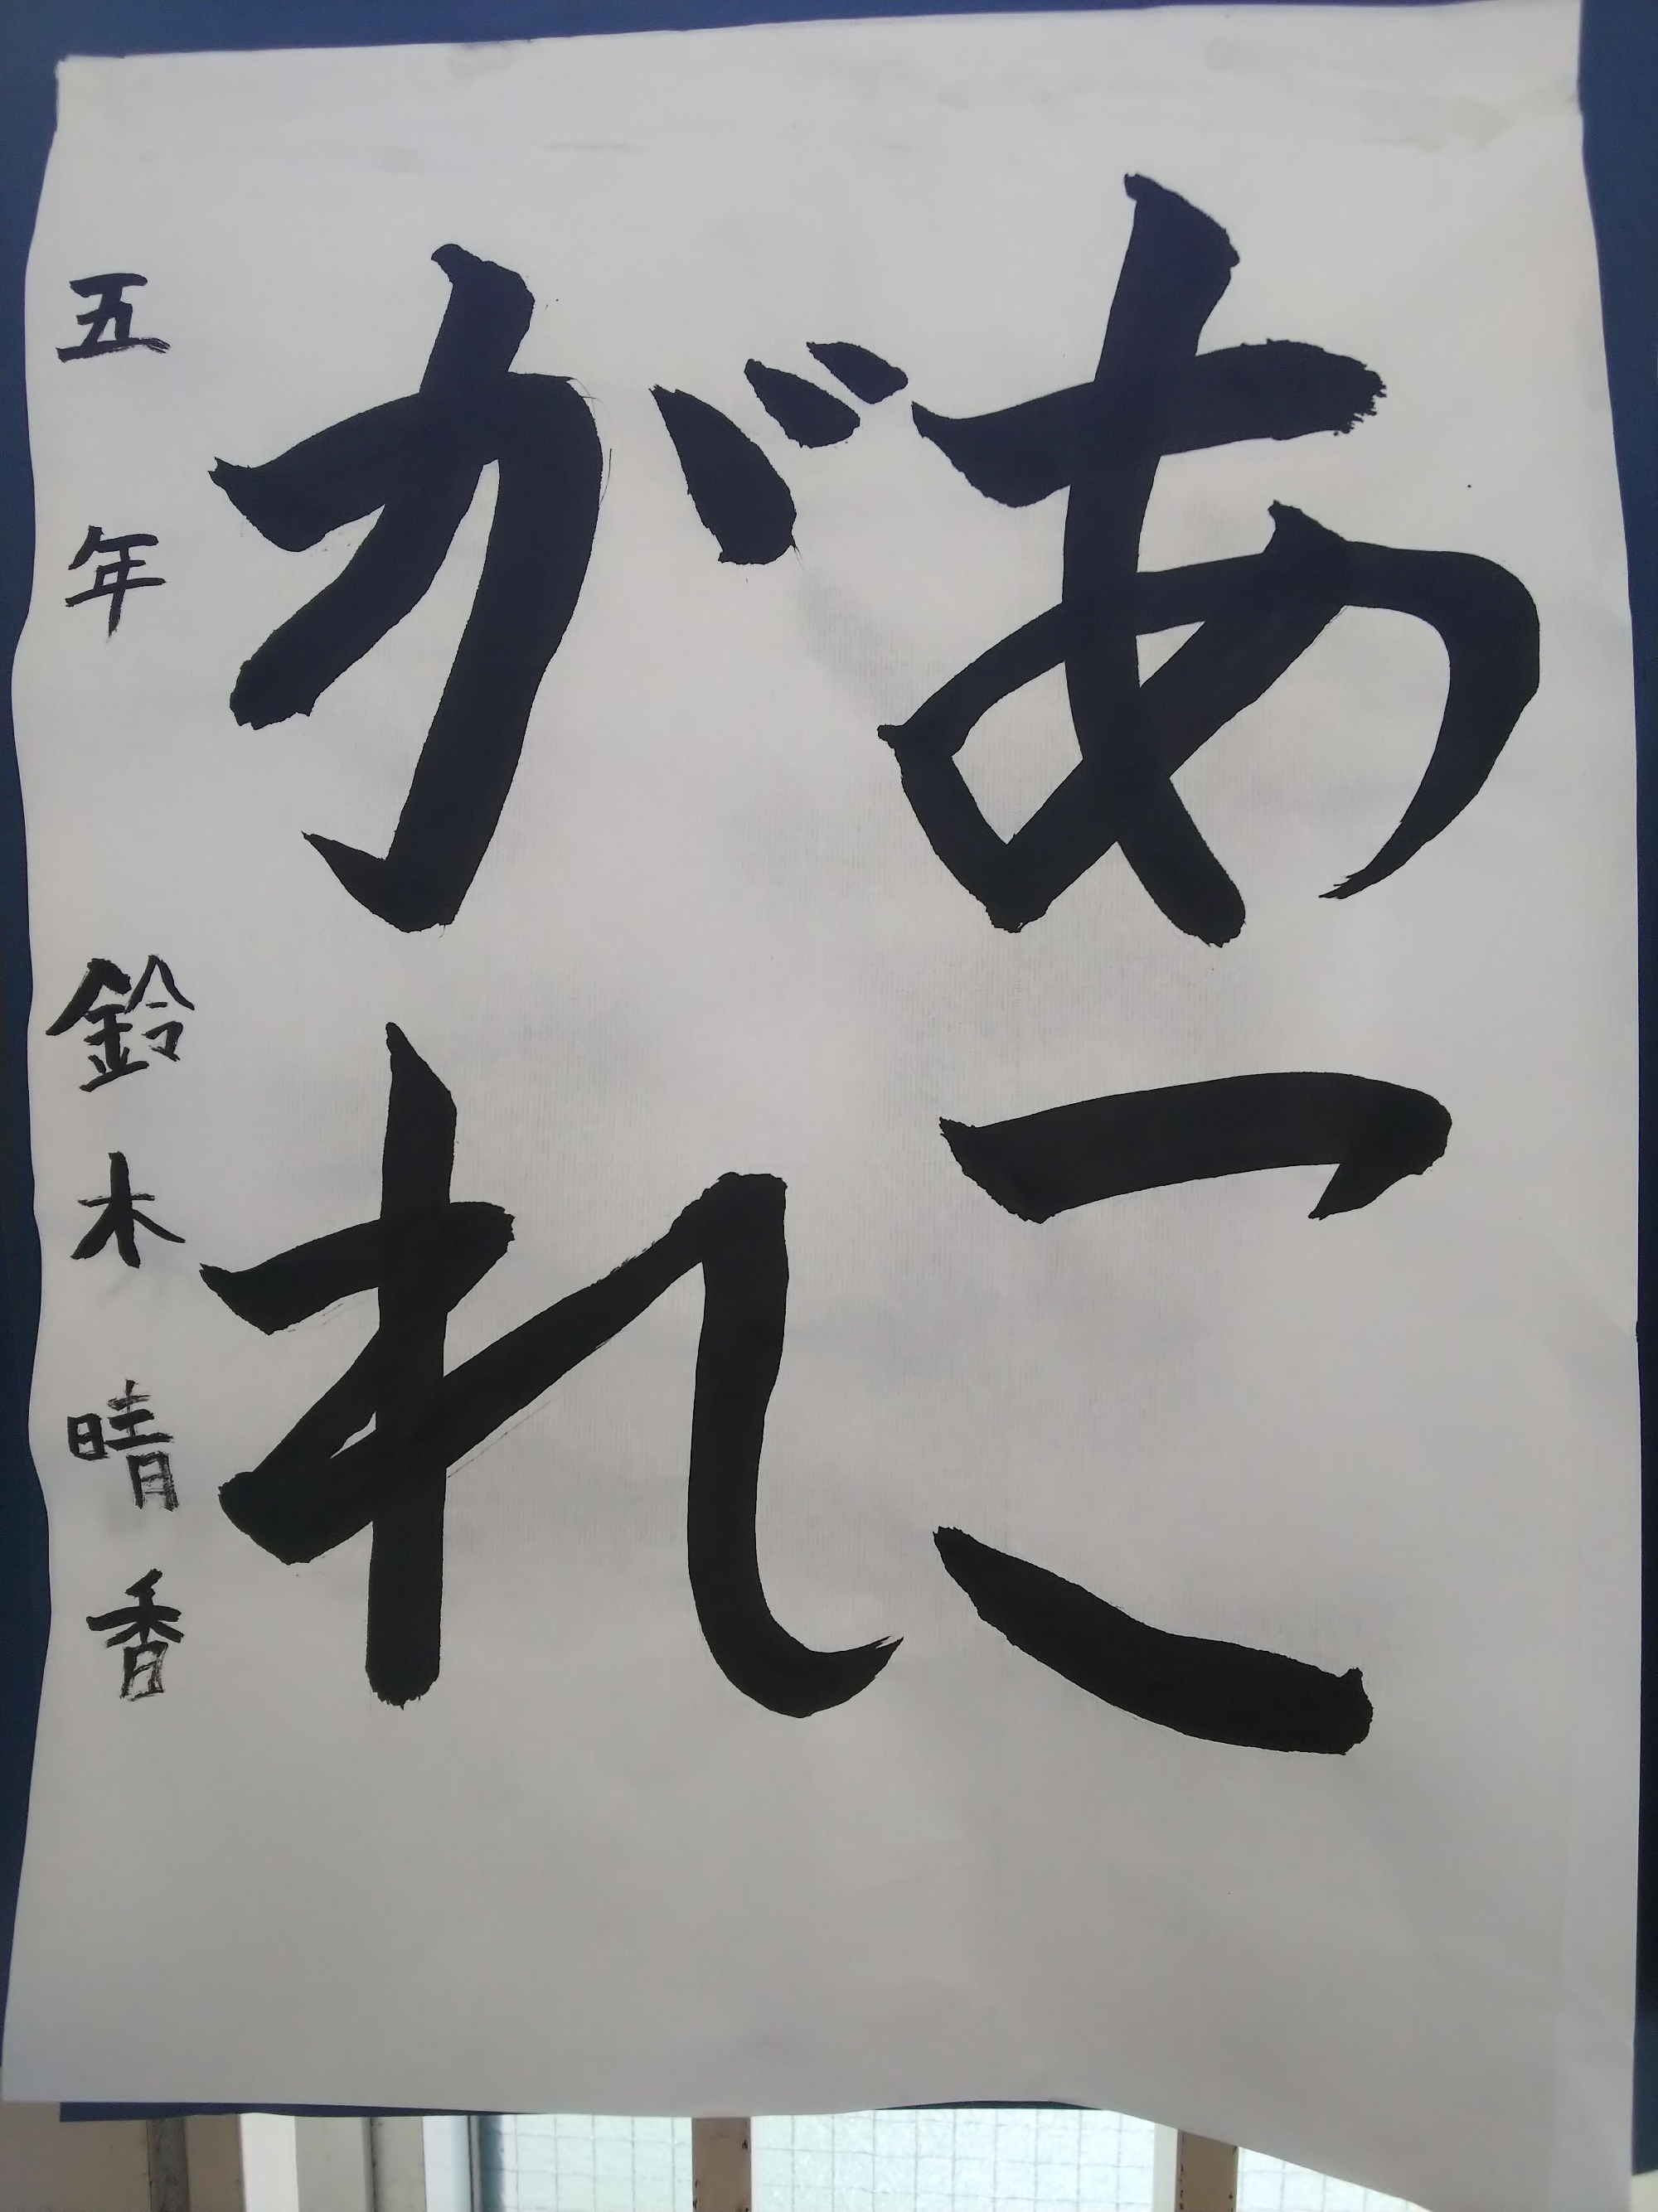 あこ
がれ
五年 鈴木晴香